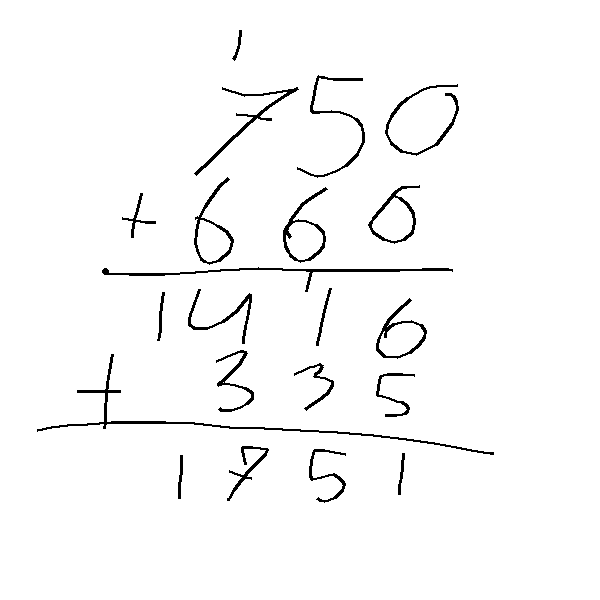 1
750
+ 666
1
1416
+ 335
1751